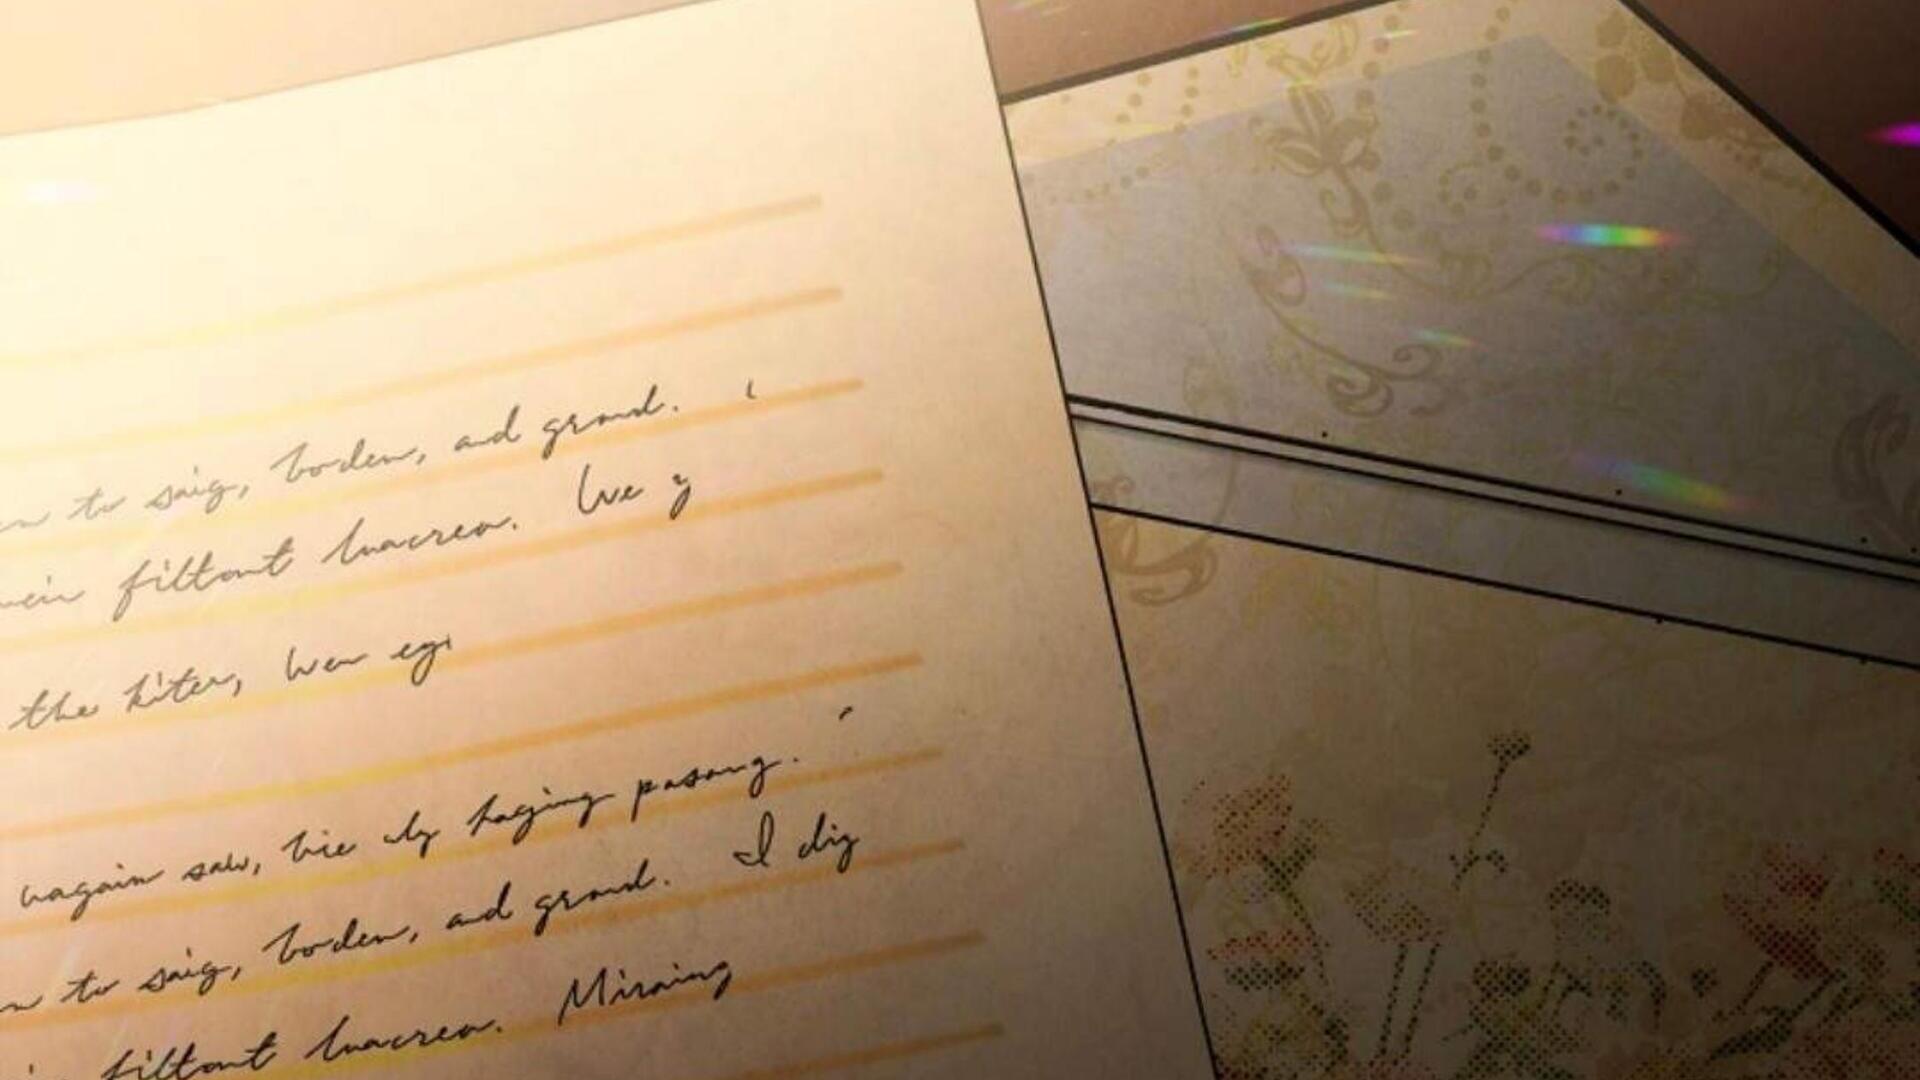 to saig, boden, and grond.
filtont luacrea. We y
the kiter, wen egi
wagain saw, bie ly haging pasong.
to saig, boden, and grond. I diy
filtont luacrea. Miraing